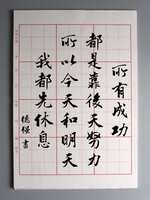 所有成功
都是靠後天努力
所以今天和明天
我都先休息
德强書